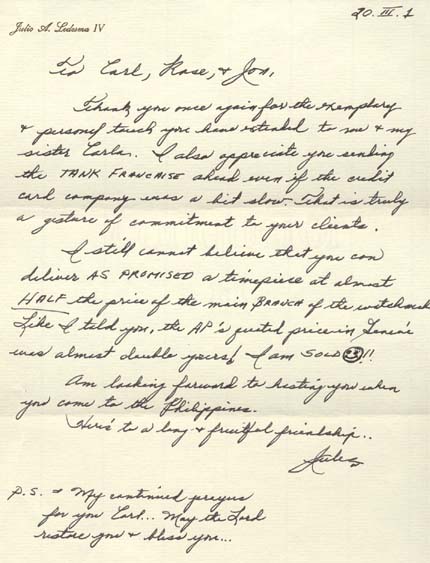 20. III. 1
Julio A. Ledesma IV
To Carl, Rose, & Jon,
Thank you once again for the exemplary
& personal touch you have extended to me & my
sister Carla. I also appreciate you sending
the TANK FRANCAISE ahead even if the credit
card company was a bit slow. That is truly
a gesture of commitment to your clients.
I still cannot believe that you can
deliver AS PROMISED a timepiece at almost
HALF the price of the main BRANCH of the watchmaker
Like I told you, the AP's quoted price in
was almost double yours! I am SOLD!!
Am looking forward to hosting you when
you come to the Philippines.
Here's to a long & fruitful friendship..
Jules
P.S. - My continued prayers
for you Carl... May the Lord
restore you & bless you...